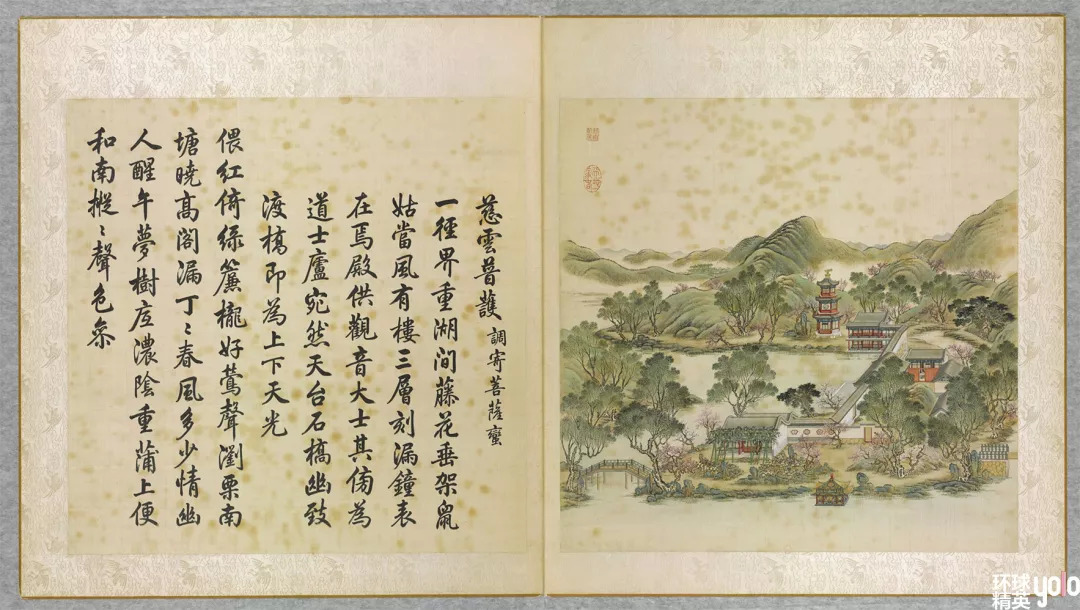 慈雲普護 調寄菩薩蠻
一徑界重湖間藤花垂架鼠
姑當風有樓三層刻漏鐘表
在焉殿供觀音大士其傍為
道士廬宛然天台石橋幽致
渡橋即為上下天光
偎紅倚綠簾櫳好鶯聲瀏栗南
塘曉高閣漏丁〻春風多少情幽
人醒午夢樹底濃陰重蒲上便
和南摐〻聲色參
环球
精英
yolo